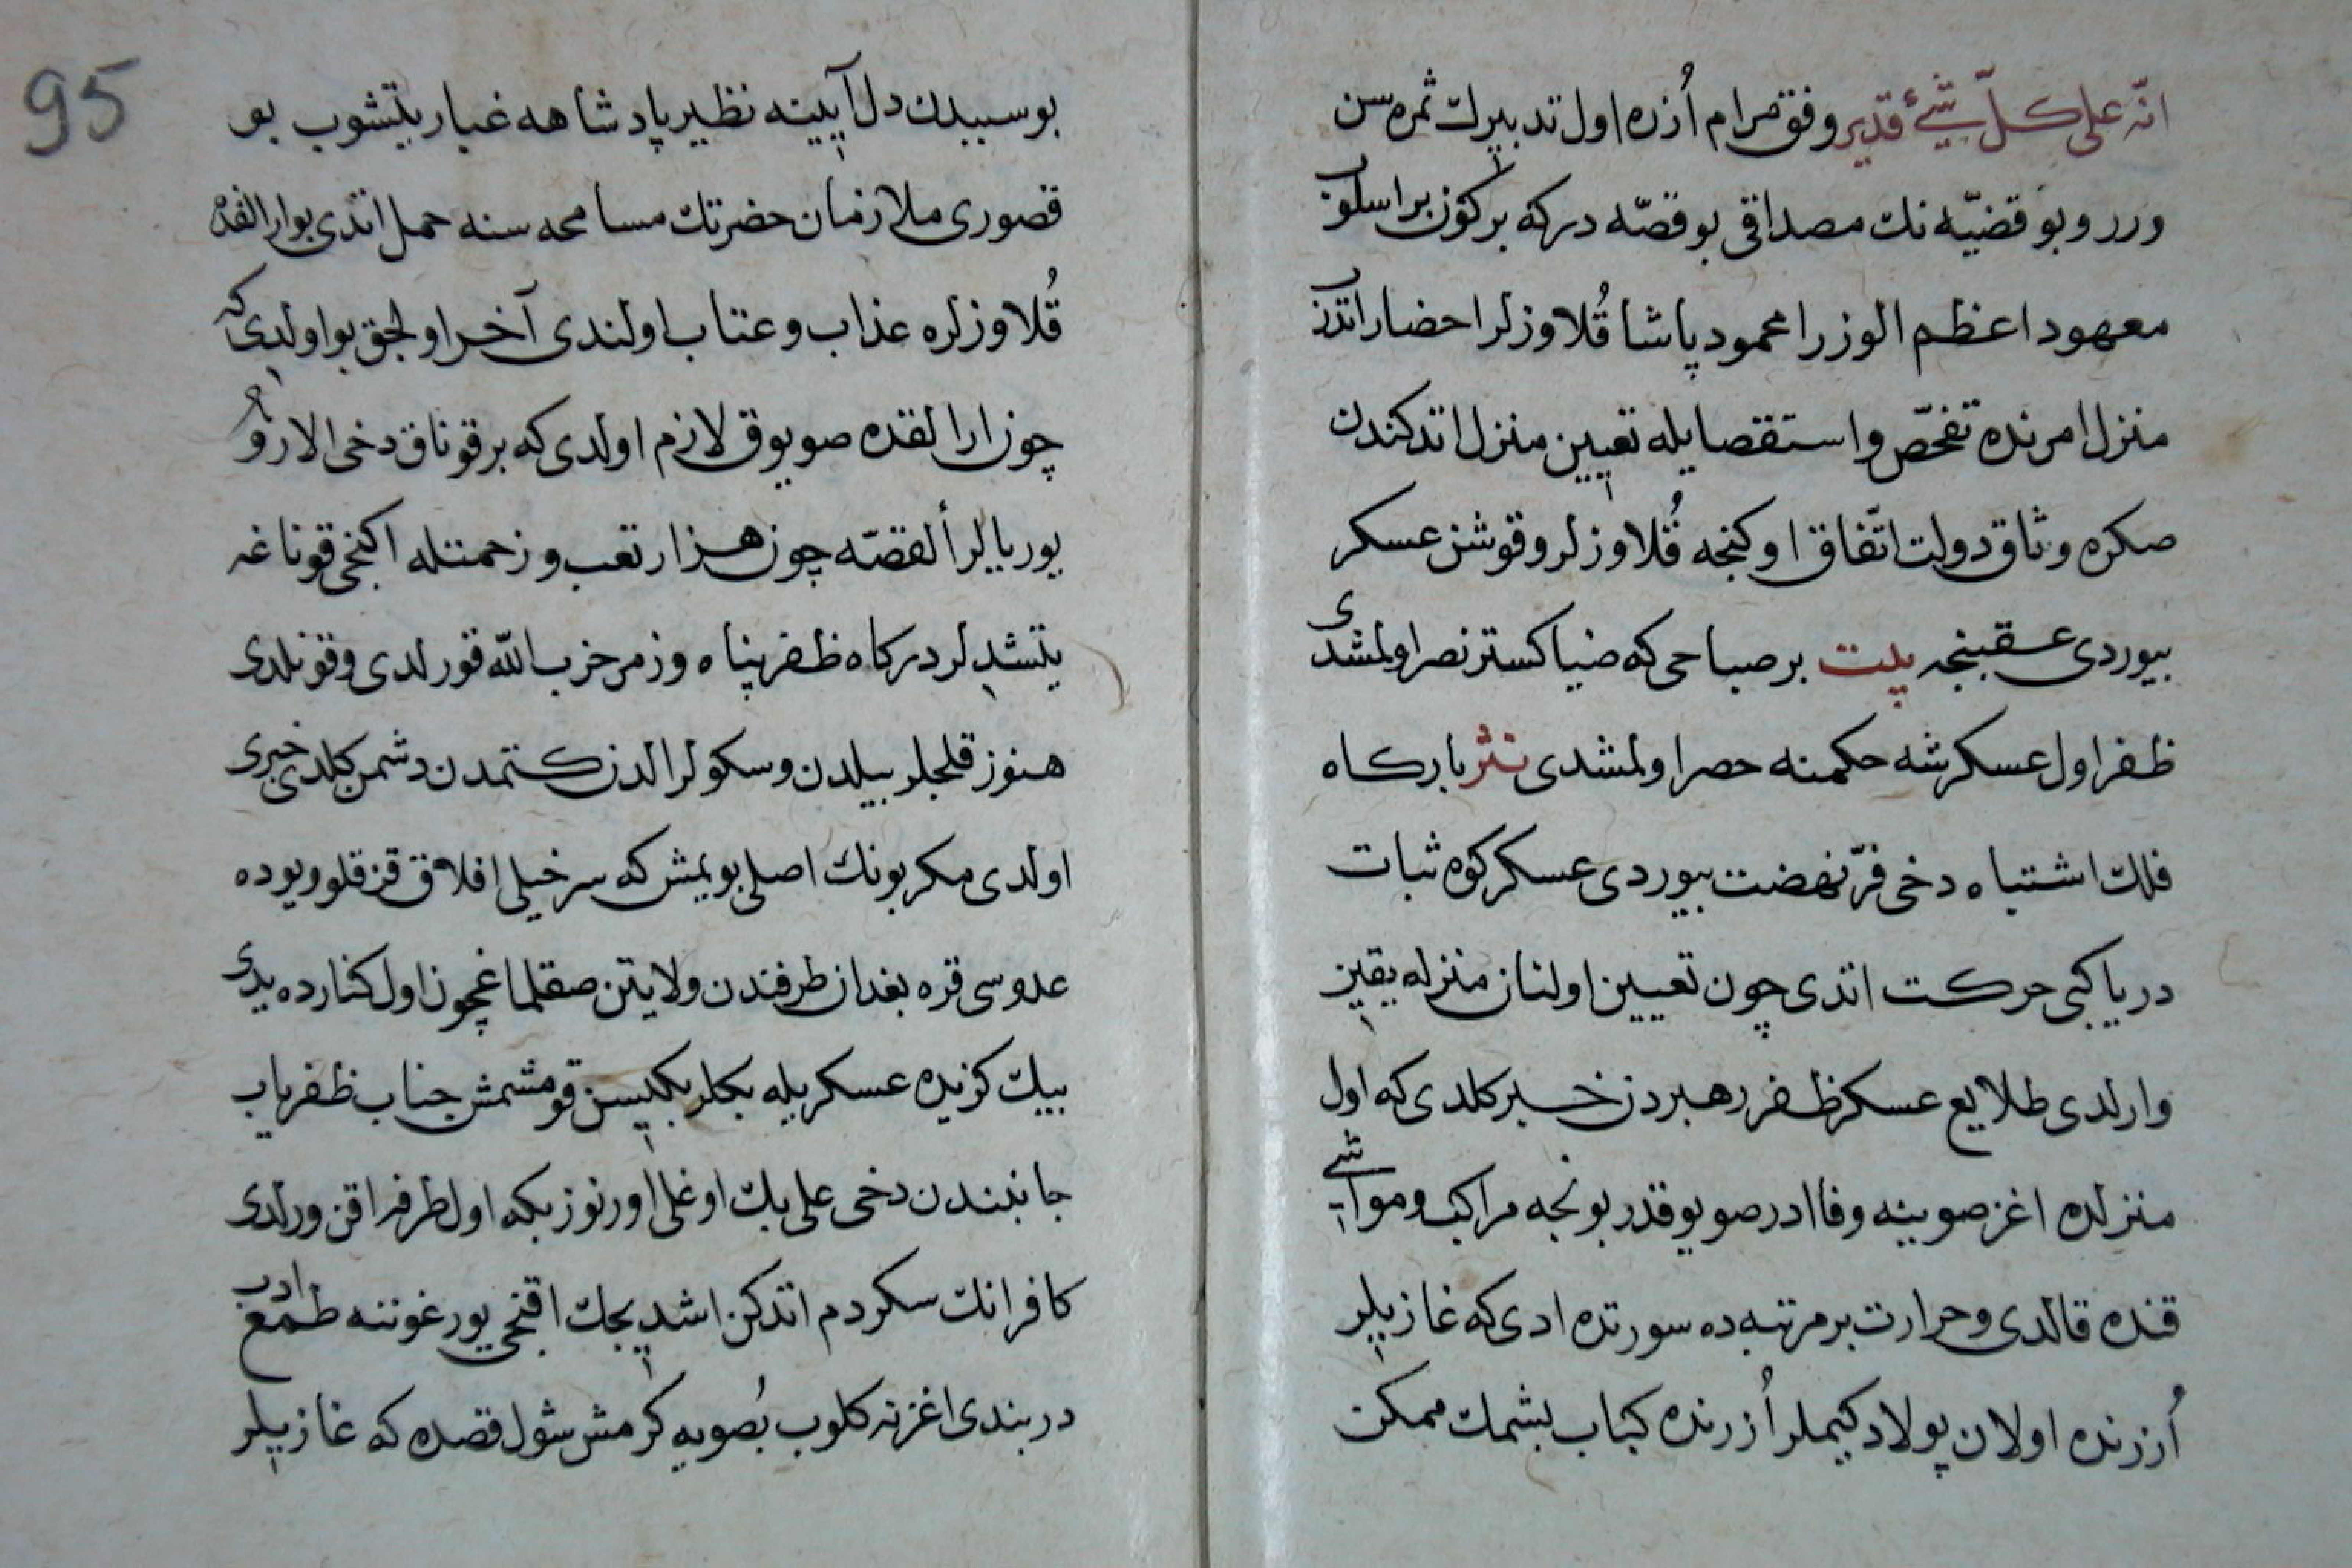 انّه على كلّ شيءٔ قدير وفق مرام اُزره اول تدبيرك ثمره سن
ورر و بو قضيّه نك مصداقى بو قصّه دركه بركون بر اسلوب
معهود اعظم الوزرا محمود پاشا قُلاوزلر احضار اتدب
منزل امرنده تفحّص و استقصايله تعيين منزل اتدكندن
صكره وثاق دولت اتّفاق اوكنجه قُلاوزلر و قوشن عسكر
بيوردى عقبنجه بيت بر صباحى كه ضيا كستر نصر اولمشدى
ظفر اول عسكر شه حكمنه حصر اولمشدى نثر باركاه
فلك اشتباه دخى فرّ نهضت بيوردى عسكر كوه ثبات
دريا كبى حركت اتدى چون تعيين اولنان منزله يقين
وارلدى طلايع عسكر ظفر رهبردن خبر كلدى كه اول
منزلده اغز صوينه وفا ادر صو يوقدر بونجه مراكب و مواشى
قنده قالدى و حرارت بر مرتبه ده سورتده ادى كه غازيلر
اُزرنده اولان پولاد كيملر اُزرنده كباب بشمك ممكن
95
بو سببدن دل آيينه نظير پادشاهه غبار يتشوب بو
قصورى ملازمان حضرتك مسامحه سنه حمل اتدى بوارالقده
قُلاوزلره عذاب و عتاب اولندى آخر اولجق بو اولدى كه
چون ارالقده صو يوق لازم اولدى كه بر قوناق دخى الارو
يوريالر ألقصّه چون هزار تعب و زحمتله اكنجى قوناغه
يتشدلر دركاه ظفر پناه و زمر حزب الله قورلدى و قونلدى
هنوز قلجلر بيلدن و سكولر الدن كتمدن دشمن كلدى خبرى
اولدى مكر بونك اصلى بويمش كه سر خيلى افلاق قزقلو ويوده
عدوسى قره بغدان طرفندن ولايتن صقلماغچون اول كنارده يدى
بيك كزيده عسكريله بكلربكيسن قومشمش جناب ظفرياب
جانبندن دخى على بك اوغلى اورنوز بكه اول طرفه اقن ورلدى
كافرانك سكردم اتدكن اشديجك اقنجى يورغوننه طمع ادب
دربندى اغزنه كلوب بُصويه كرمش شول قصده كه غازيلر